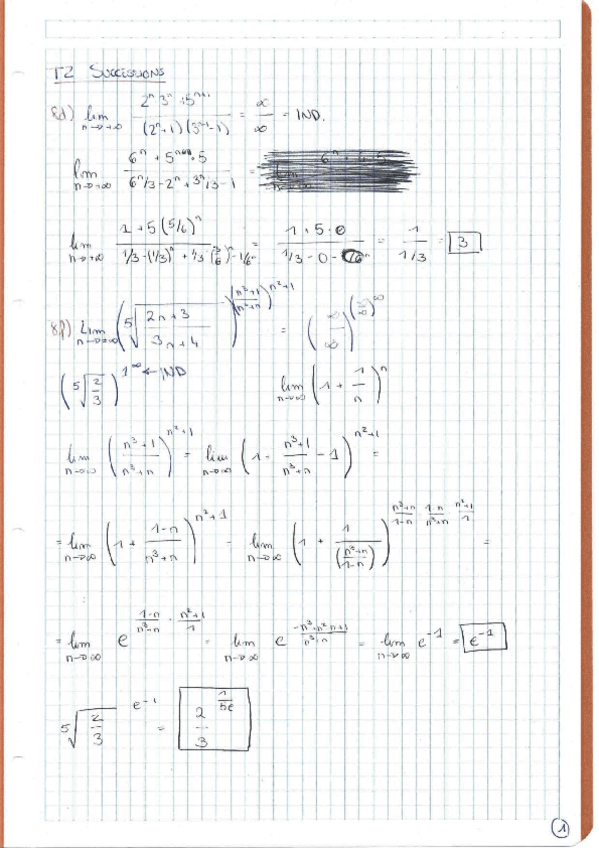 T2 Successions
8d) lim n→+∞ (2ⁿ·3ⁿ + 5ⁿ⁺¹) / ((2ⁿ+1)(3ⁿ⁻¹-1)) = ∞/∞ = IND.
lim n→+∞ (6ⁿ + 5ⁿ·5) / (6ⁿ/3 - 2ⁿ + 3ⁿ/3 - 1) =
lim n→+∞ (1 + 5(5/6)ⁿ) / (1/3 - (1/3)ⁿ + 1/3(3/6)ⁿ - 1/6ⁿ) = (1 + 5·0) / (1/3 - 0 - ) = 1 / (1/3) = 3
8f) Lim n→∞ (⁵√((2n+3)/(3n+4)))^(((n³+1)/(n³+n))^(n²+1)) = (∞/∞)^((∞/∞)^∞)
(⁵√(2/3))^(1^∞) ← IND lim n→∞ (1 + 1/n)ⁿ
lim n→∞ ((n³+1)/(n³+n))^(n²+1) = lim n→∞ (1 + (n³+1)/(n³+n) - 1)^(n²+1) =
= lim n→∞ (1 + (1-n)/(n³+n))^(n²+1) = lim n→∞ (1 + 1/((n³+n)/(1-n)))^((n³+n)/(1-n) · (1-n)/(n³+n) · (n²+1)/1) =
= lim n→∞ e^((1-n)/(n³+n) · (n²+1)/1) = lim n→∞ e^((-n³+n²-n+1)/(n³+n)) = lim n→∞ e⁻¹ = e⁻¹
⁵√(2/3)^(e⁻¹) = (2/3)^(1/5e)
1